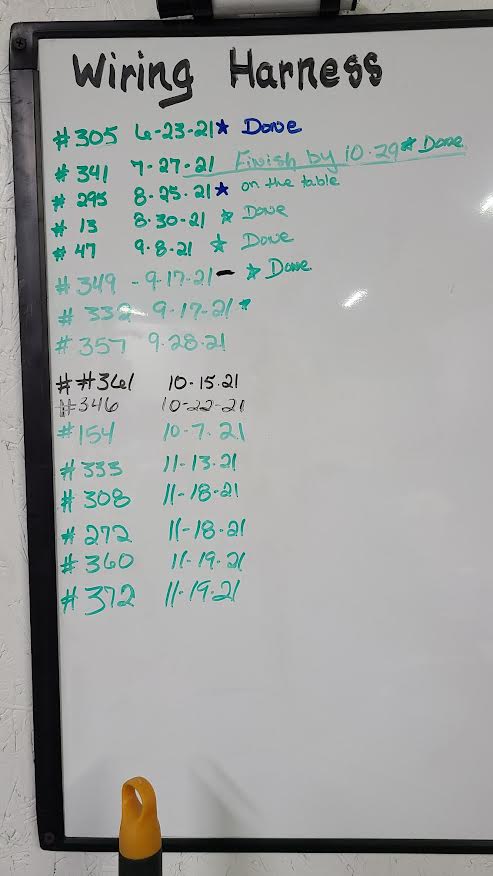 Wiring Harness
#305 6-23-21* Done
#341 7-27-21 Finish by 10-29* Done
#295 8-25-21* on the table
#13 8-30-21 * Done
#47 9-8-21 * Done
#349 - 9-17-21 - * Done
#332 9-17-21*
#357 9-28-21
##361 10-15-21
#346 10-22-21
#154 10-7-21
#333 11-13-21
#308 11-18-21
#272 11-18-21
#360 11-19-21
#372 11-19-21